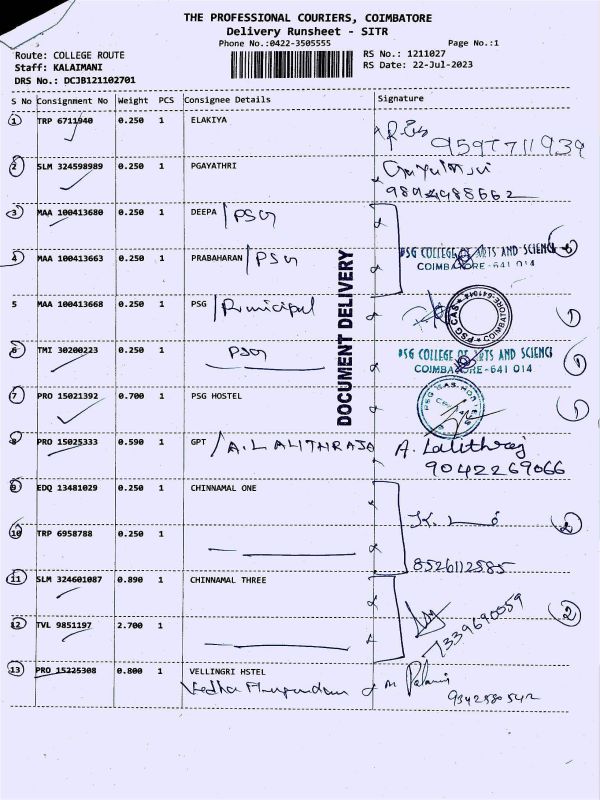 THE PROFESSIONAL COURIERS, COIMBATORE
Delivery Runsheet - SITR
Phone No.:0422-3505555 Page No.:1
Route: COLLEGE ROUTE RS No.: 1211027
Staff: KALAIMANI RS Date: 22-Jul-2023
DRS No.: DCJB121102701
S No Consignment No Weight PCS Consignee Details Signature
1 TRP 6711940 0.250 1 ELAKIYA
9597711939
2 SLM 324598989 0.250 1 PGAYATHRI
9894985662
3 MAA 100413680 0.250 1 DEEPA /PSG
4 MAA 100413663 0.250 1 PRABAHARAN /PSG PSG COLLEGE OF ARTS AND SCIENCE
COIMBATORE-641 014
DOCUMENT DELIVERY
5 MAA 100413668 0.250 1 PSG PSG CAS COIMBATORE-641014 1
6 TMI 30200223 0.250 1 PSG PSG COLLEGE OF ARTS AND SCIENCE 1
COIMBATORE-641 014
7 PRO 15021392 0.700 1 PSG HOSTEL 1
8 PRO 15025333 0.590 1 GPT /A.LALITHRAJ A. Lalithraj
9042269066
9 EDQ 13481029 0.250 1 CHINNAMAL ONE
10 TRP 6958788 0.250 1 2
8526112585
11 SLM 324601087 0.890 1 CHINNAMAL THREE
7339690059 2
12 TVL 9851197 2.700 1
13 PRO 15225308 0.800 1 VELLINGRI HSTEL
9342580542